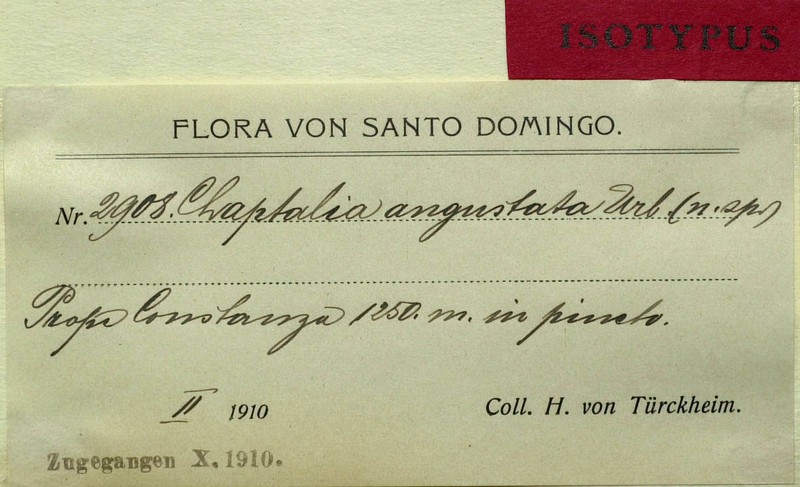 ISOTYPUS
FLORA VON SANTO DOMINGO.
Nr. 2908. Chaptalia angustata Urb. (n. sp.)
Prope Constanza 1250. m. in pineto.
II 1910 Coll. H. von Türckheim.
Zugegangen X. 1910.